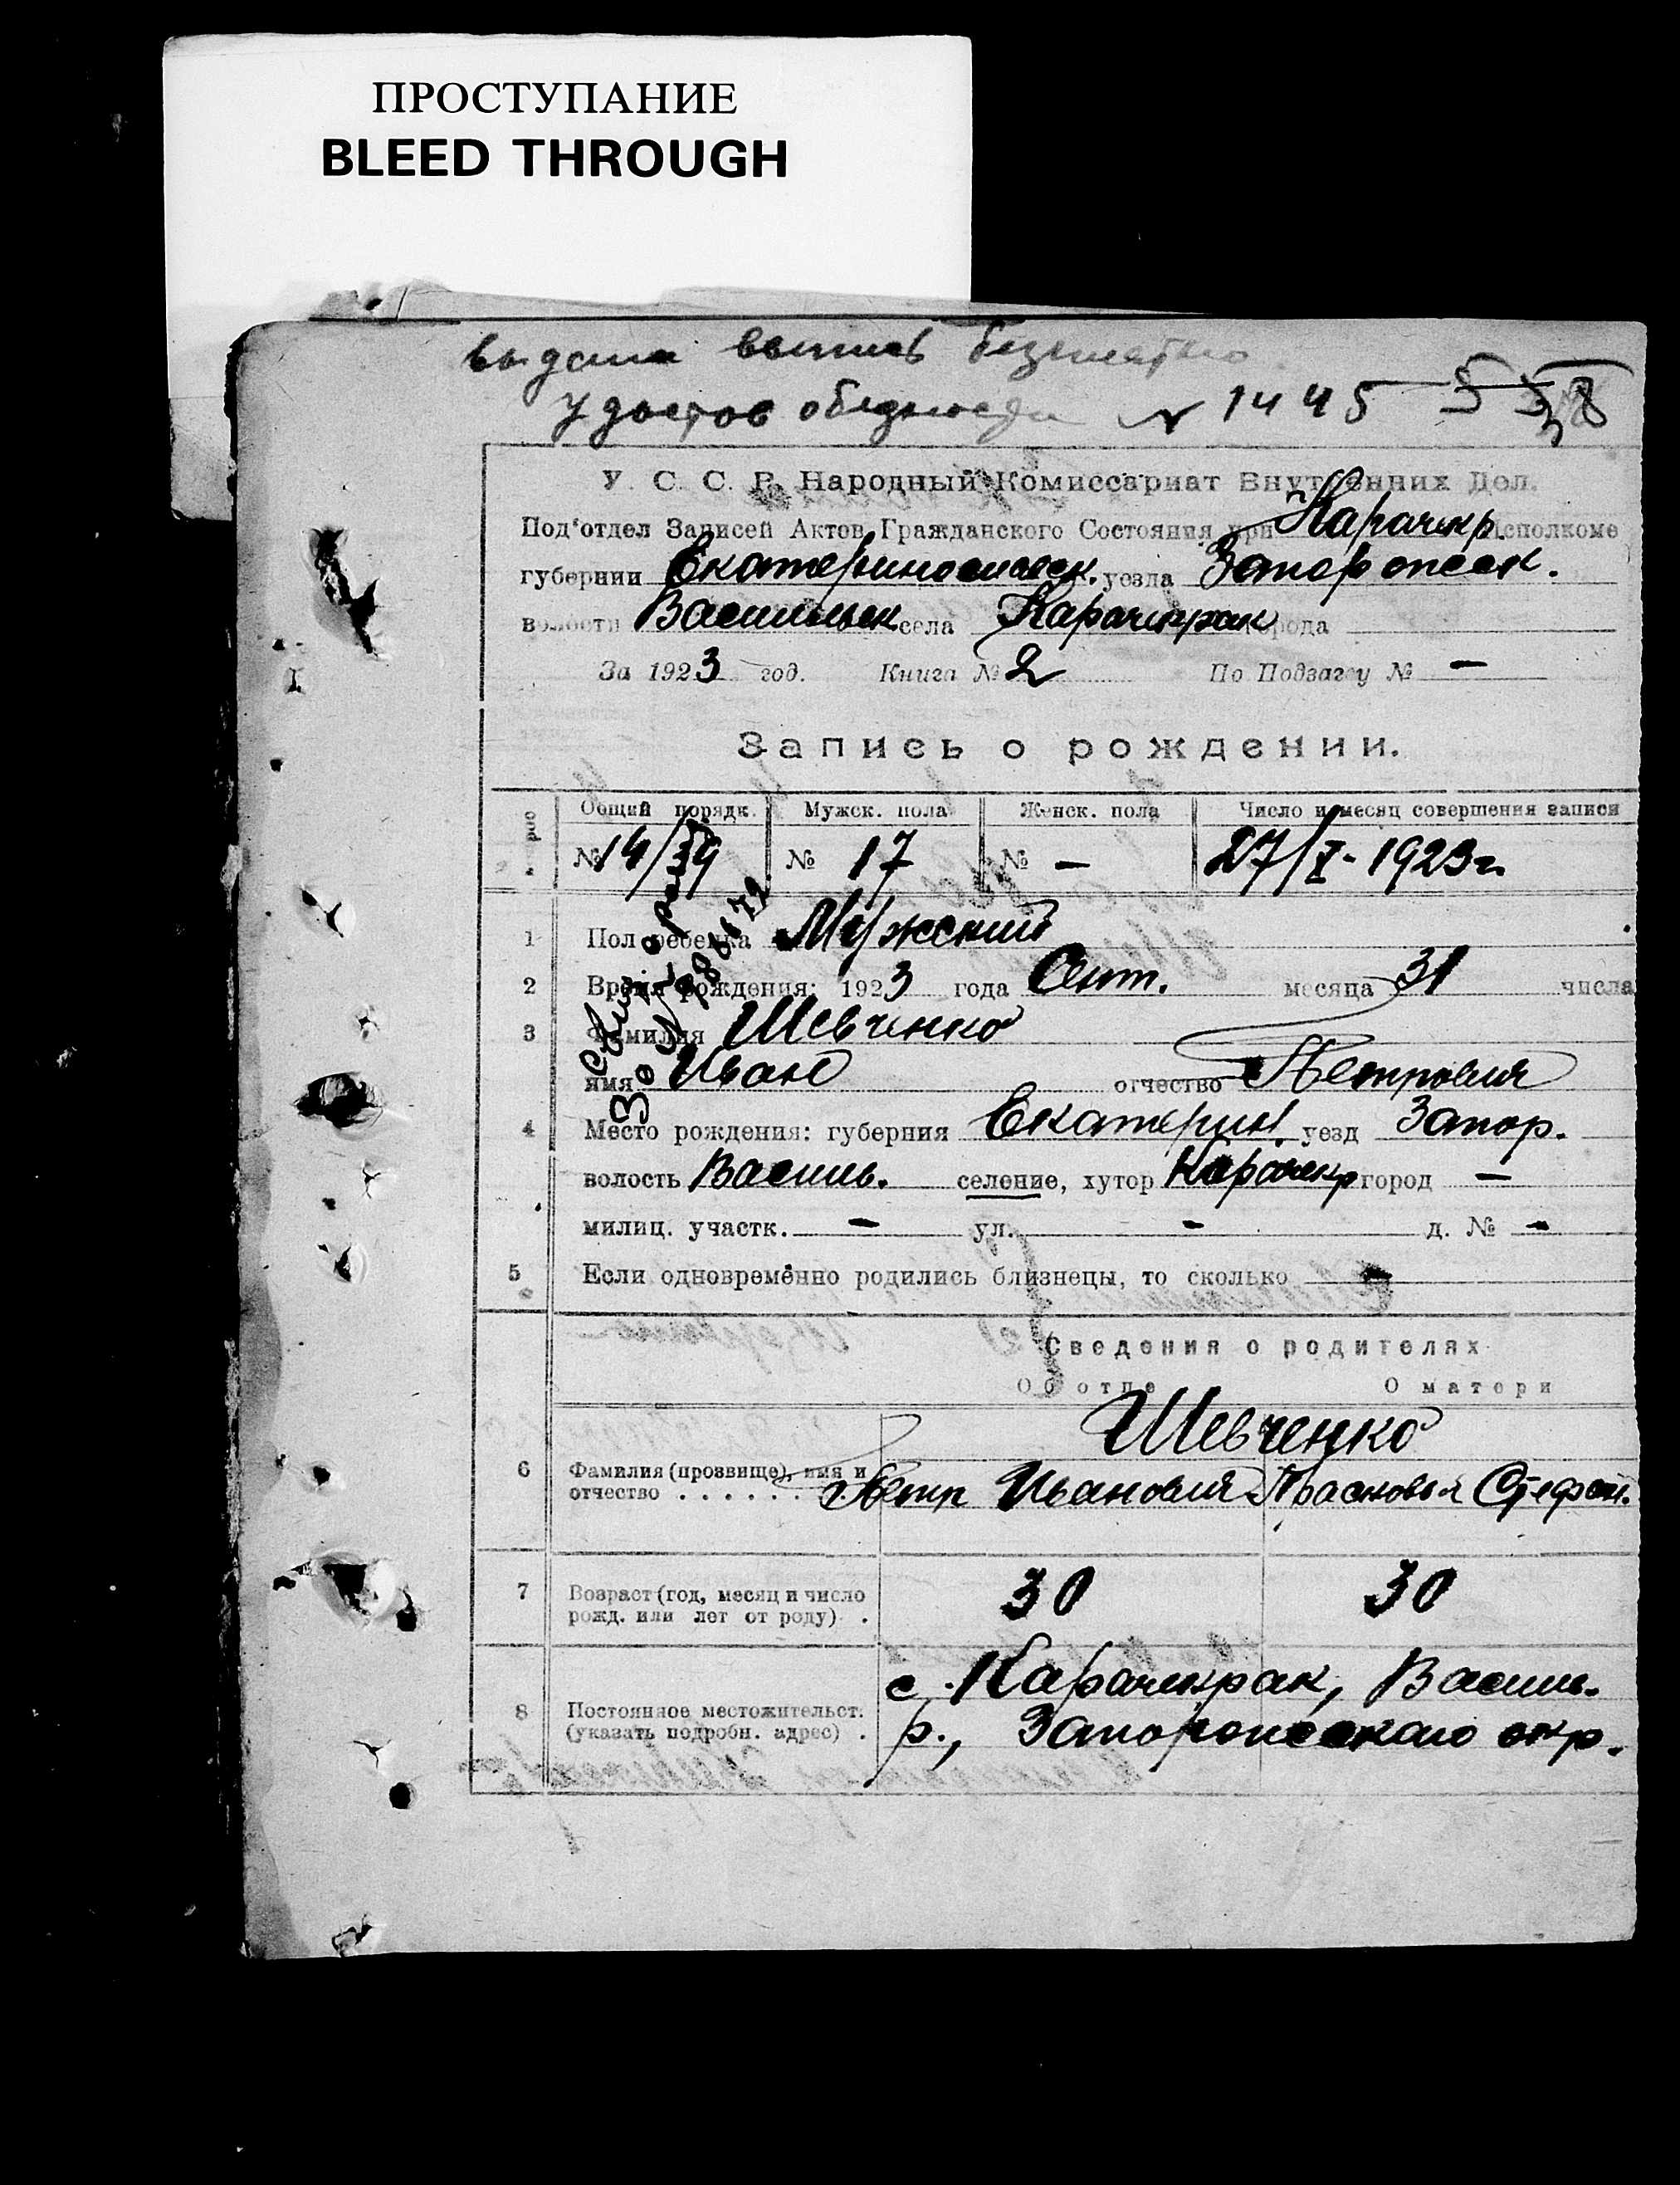 ПРОСТУПАНИЕ
BLEED THROUGH
выдана выпись безплатно
удостов о бедности № 1445
У. С. С. Р. Народный Комиссариат Внутренних Дел.
Под'отдел Записей Актов Гражданского Состояния при Карачекр. Исполкоме
губернии Екатеринославск. уезда Запорожск.
волости Васильевск села Карачекрак города
За 1923 год. Книга № 2 По Подзагсу № —
Запись о рождении.
Общий порядк. Мужск. пола Женск. пола Число и месяц совершения записи
№ 14/39 № 17 № — 27/X-1923г.
1 Пол ребенка Мужский
2 Время рождения: 1923 года Сент. месяца 31 числа
3 Фамилия Шевченко
имя Иван отчество Петрович
4 Место рождения: губерния Екатерин. уезд Запор.
волость Василь. селение, хутор Карачекр город —
милиц. участк. — ул. — д. № —
5 Если одновременно родились близнецы, то сколько
Сведения о родителях
Об отце О матери
Шевченко
6 Фамилия (прозвище), имя и отчество . . . . . . Петр Иванович Прасковья Стефан.
7 Возраст (год, месяц и число рожд. или лет от роду) . 30 30
8 Постоянное местожительст. (указать подробн. адрес) . с. Карачекрак, Василь.
р., Запорожского окр.